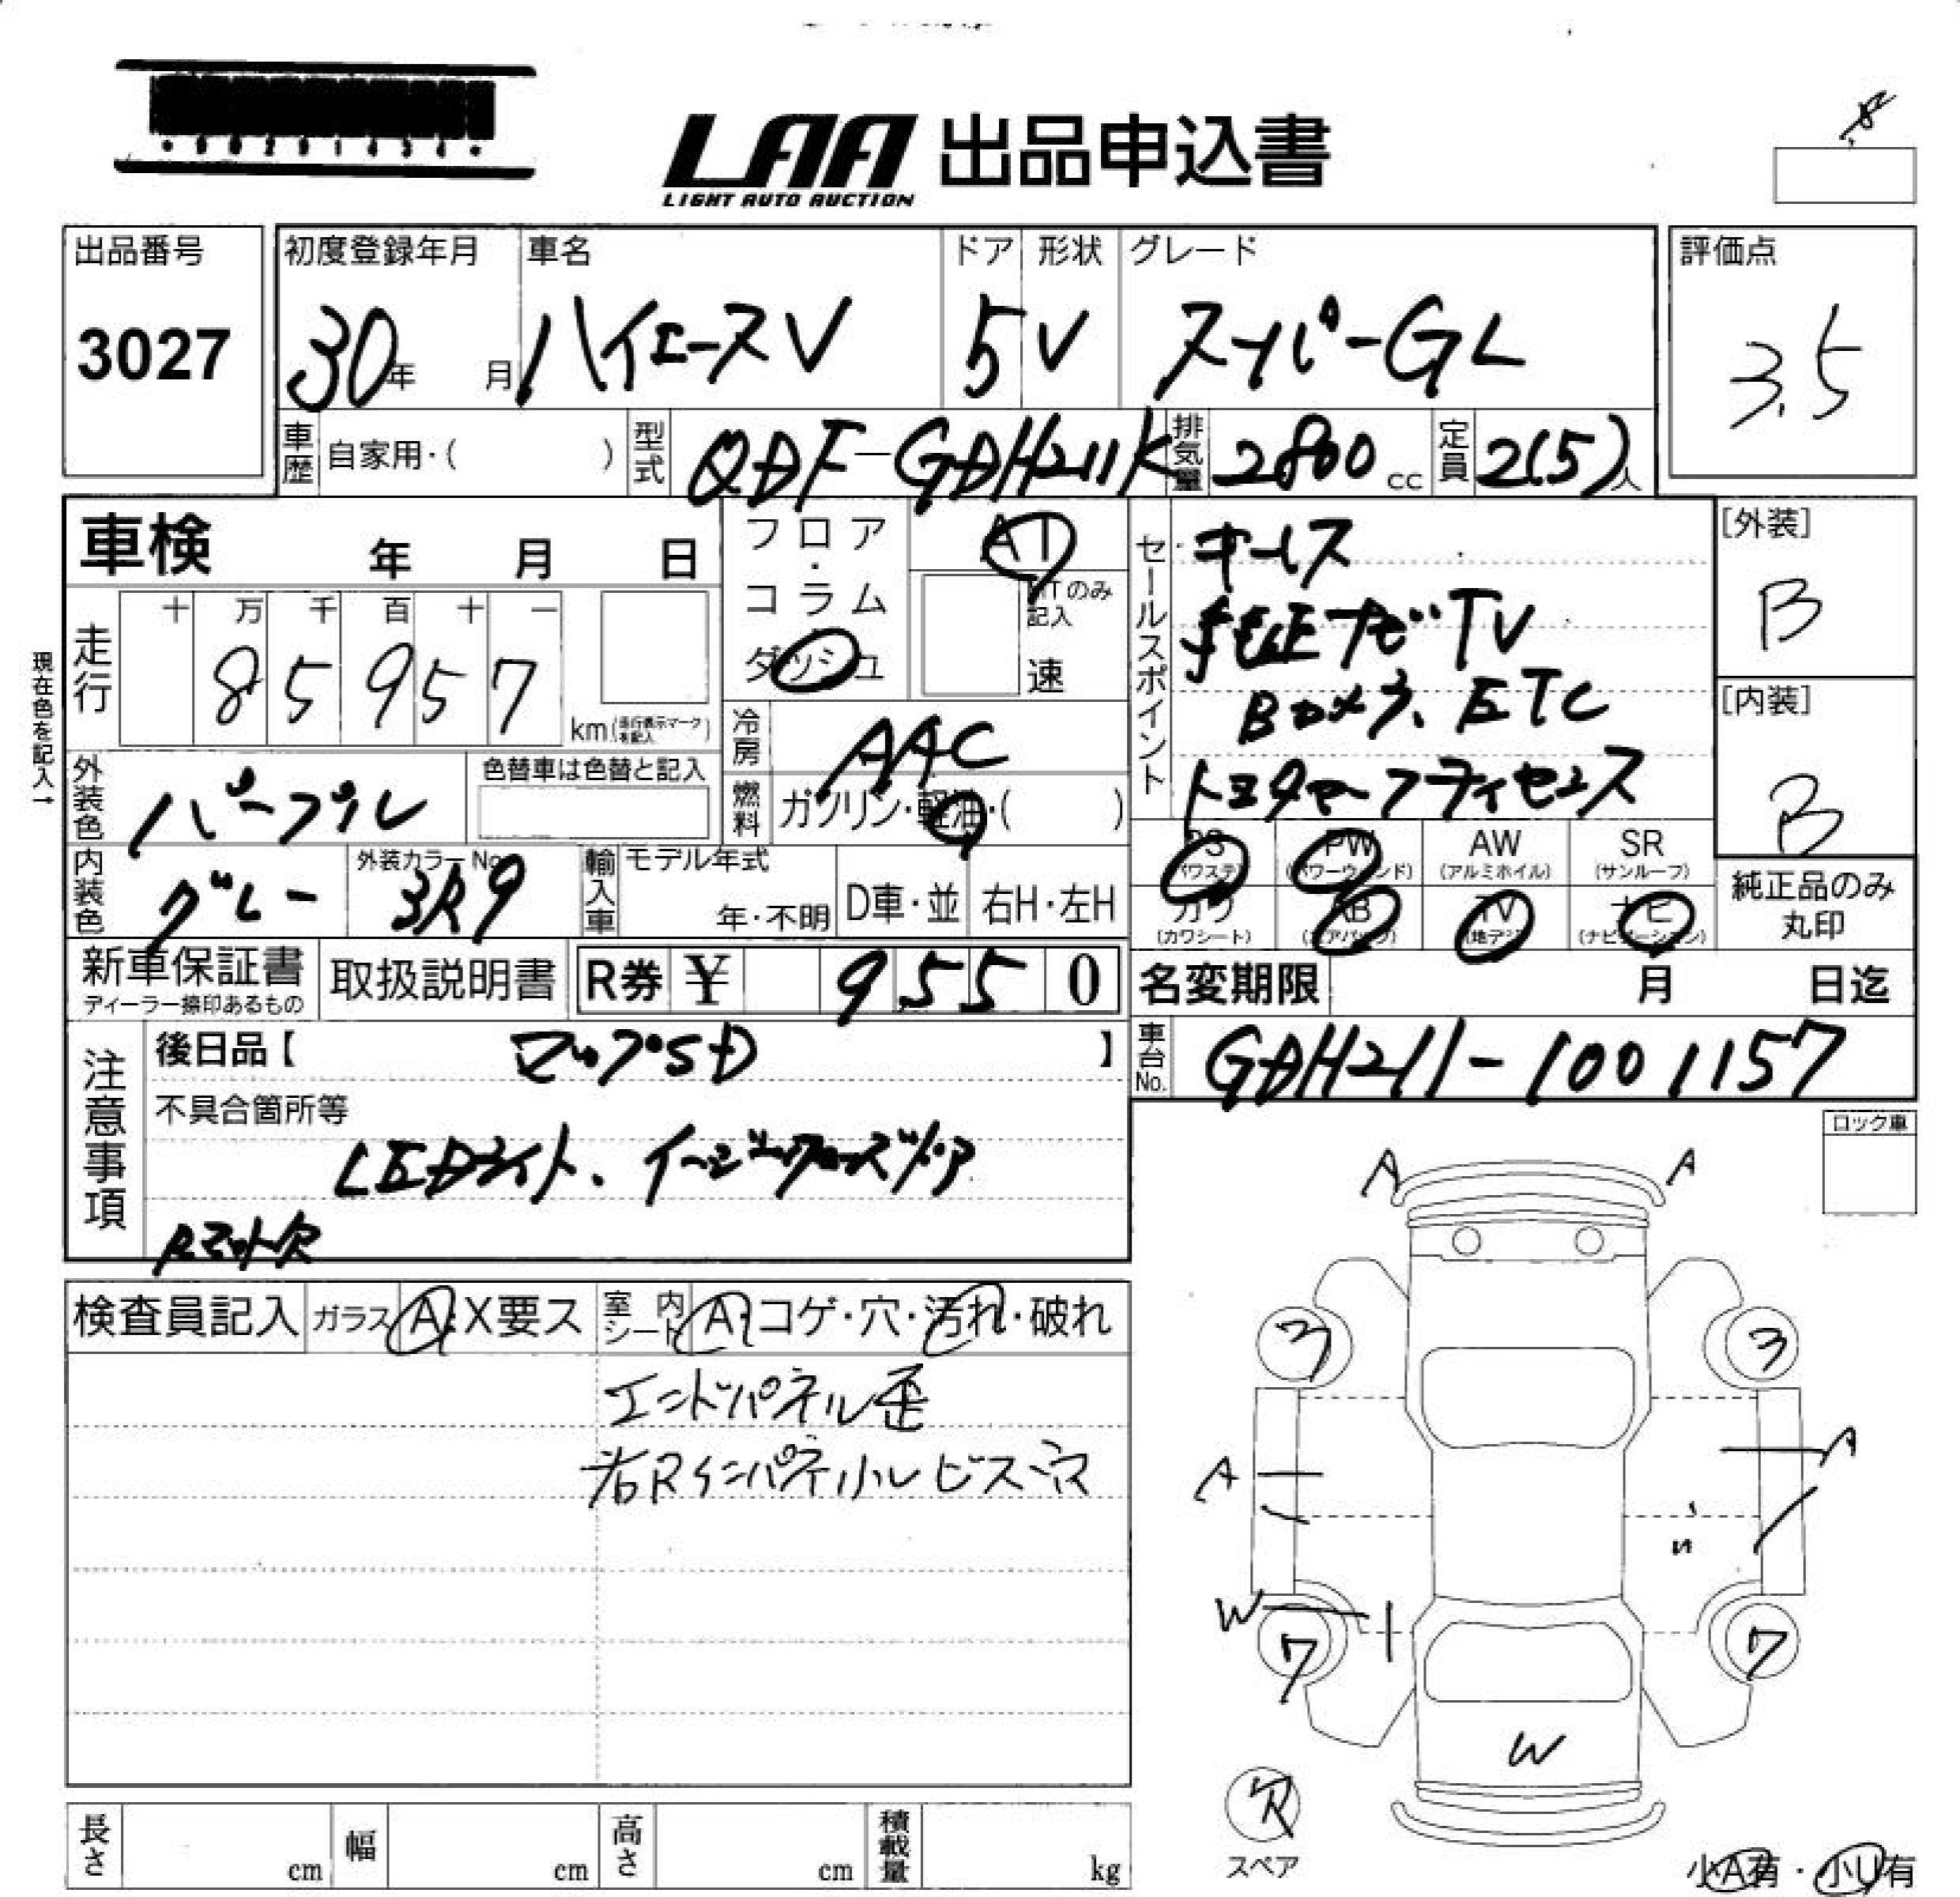 LAA 出品申込書
LIGHT AUTO AUCTION
出品番号
3027
初度登録年月
30年 月
車名
ハイエースV
ドア
5
形状
V
グレード
スーパーGL
評価点
3.5
車歴 自家用・( )
型式 QDF-GDH211K
排気量 2800 cc
定員 2(5)人
車検 年 月 日
フロア・コラム・ダッシュ
AT
MTのみ記入
速
セールスポイント
キーレス
純正ナビTV
Bカメラ、ETC
トヨタセーフティセンス
[外装]
B
[内装]
B
現在色を記入→
走行
十 万 千 百 十 一
8 5 9 5 7
km(走行表示マークを記入)
冷房 AAC
燃料 ガソリン・軽油・( )
外装色 パープル
色替車は色替と記入
内装色 グレー
外装カラーNo.
3R9
輸入車
モデル年式
年・不明
D車・並
右H・左H
PS
(パワステ)
PW
(パワーウィンド)
AW
(アルミホイル)
SR
(サンルーフ)
カワ
(カワシート)
AB
(エアバッグ)
TV
(地デジ)
ナビ
(ナビゲーション)
純正品のみ
丸印
新車保証書
ディーラー捺印あるもの
取扱説明書
R券 ¥ 9 5 5 0
名変期限 月 日迄
注意事項
後日品【 マップSD 】
車台No. GDH211-1001157
不具合箇所等
LEDライト、イージークローズドア
Rマット欠
ロック車
検査員記入
ガラス A・X要ス
室内シート A・コゲ・穴・汚れ・破れ
エンドパネル歪
右Rインパネル小ビス穴
A A
3 3
A A
W
7 7
W
欠
スペア
小A有・小U有
長さ cm
幅 cm
高さ cm
積載量 kg